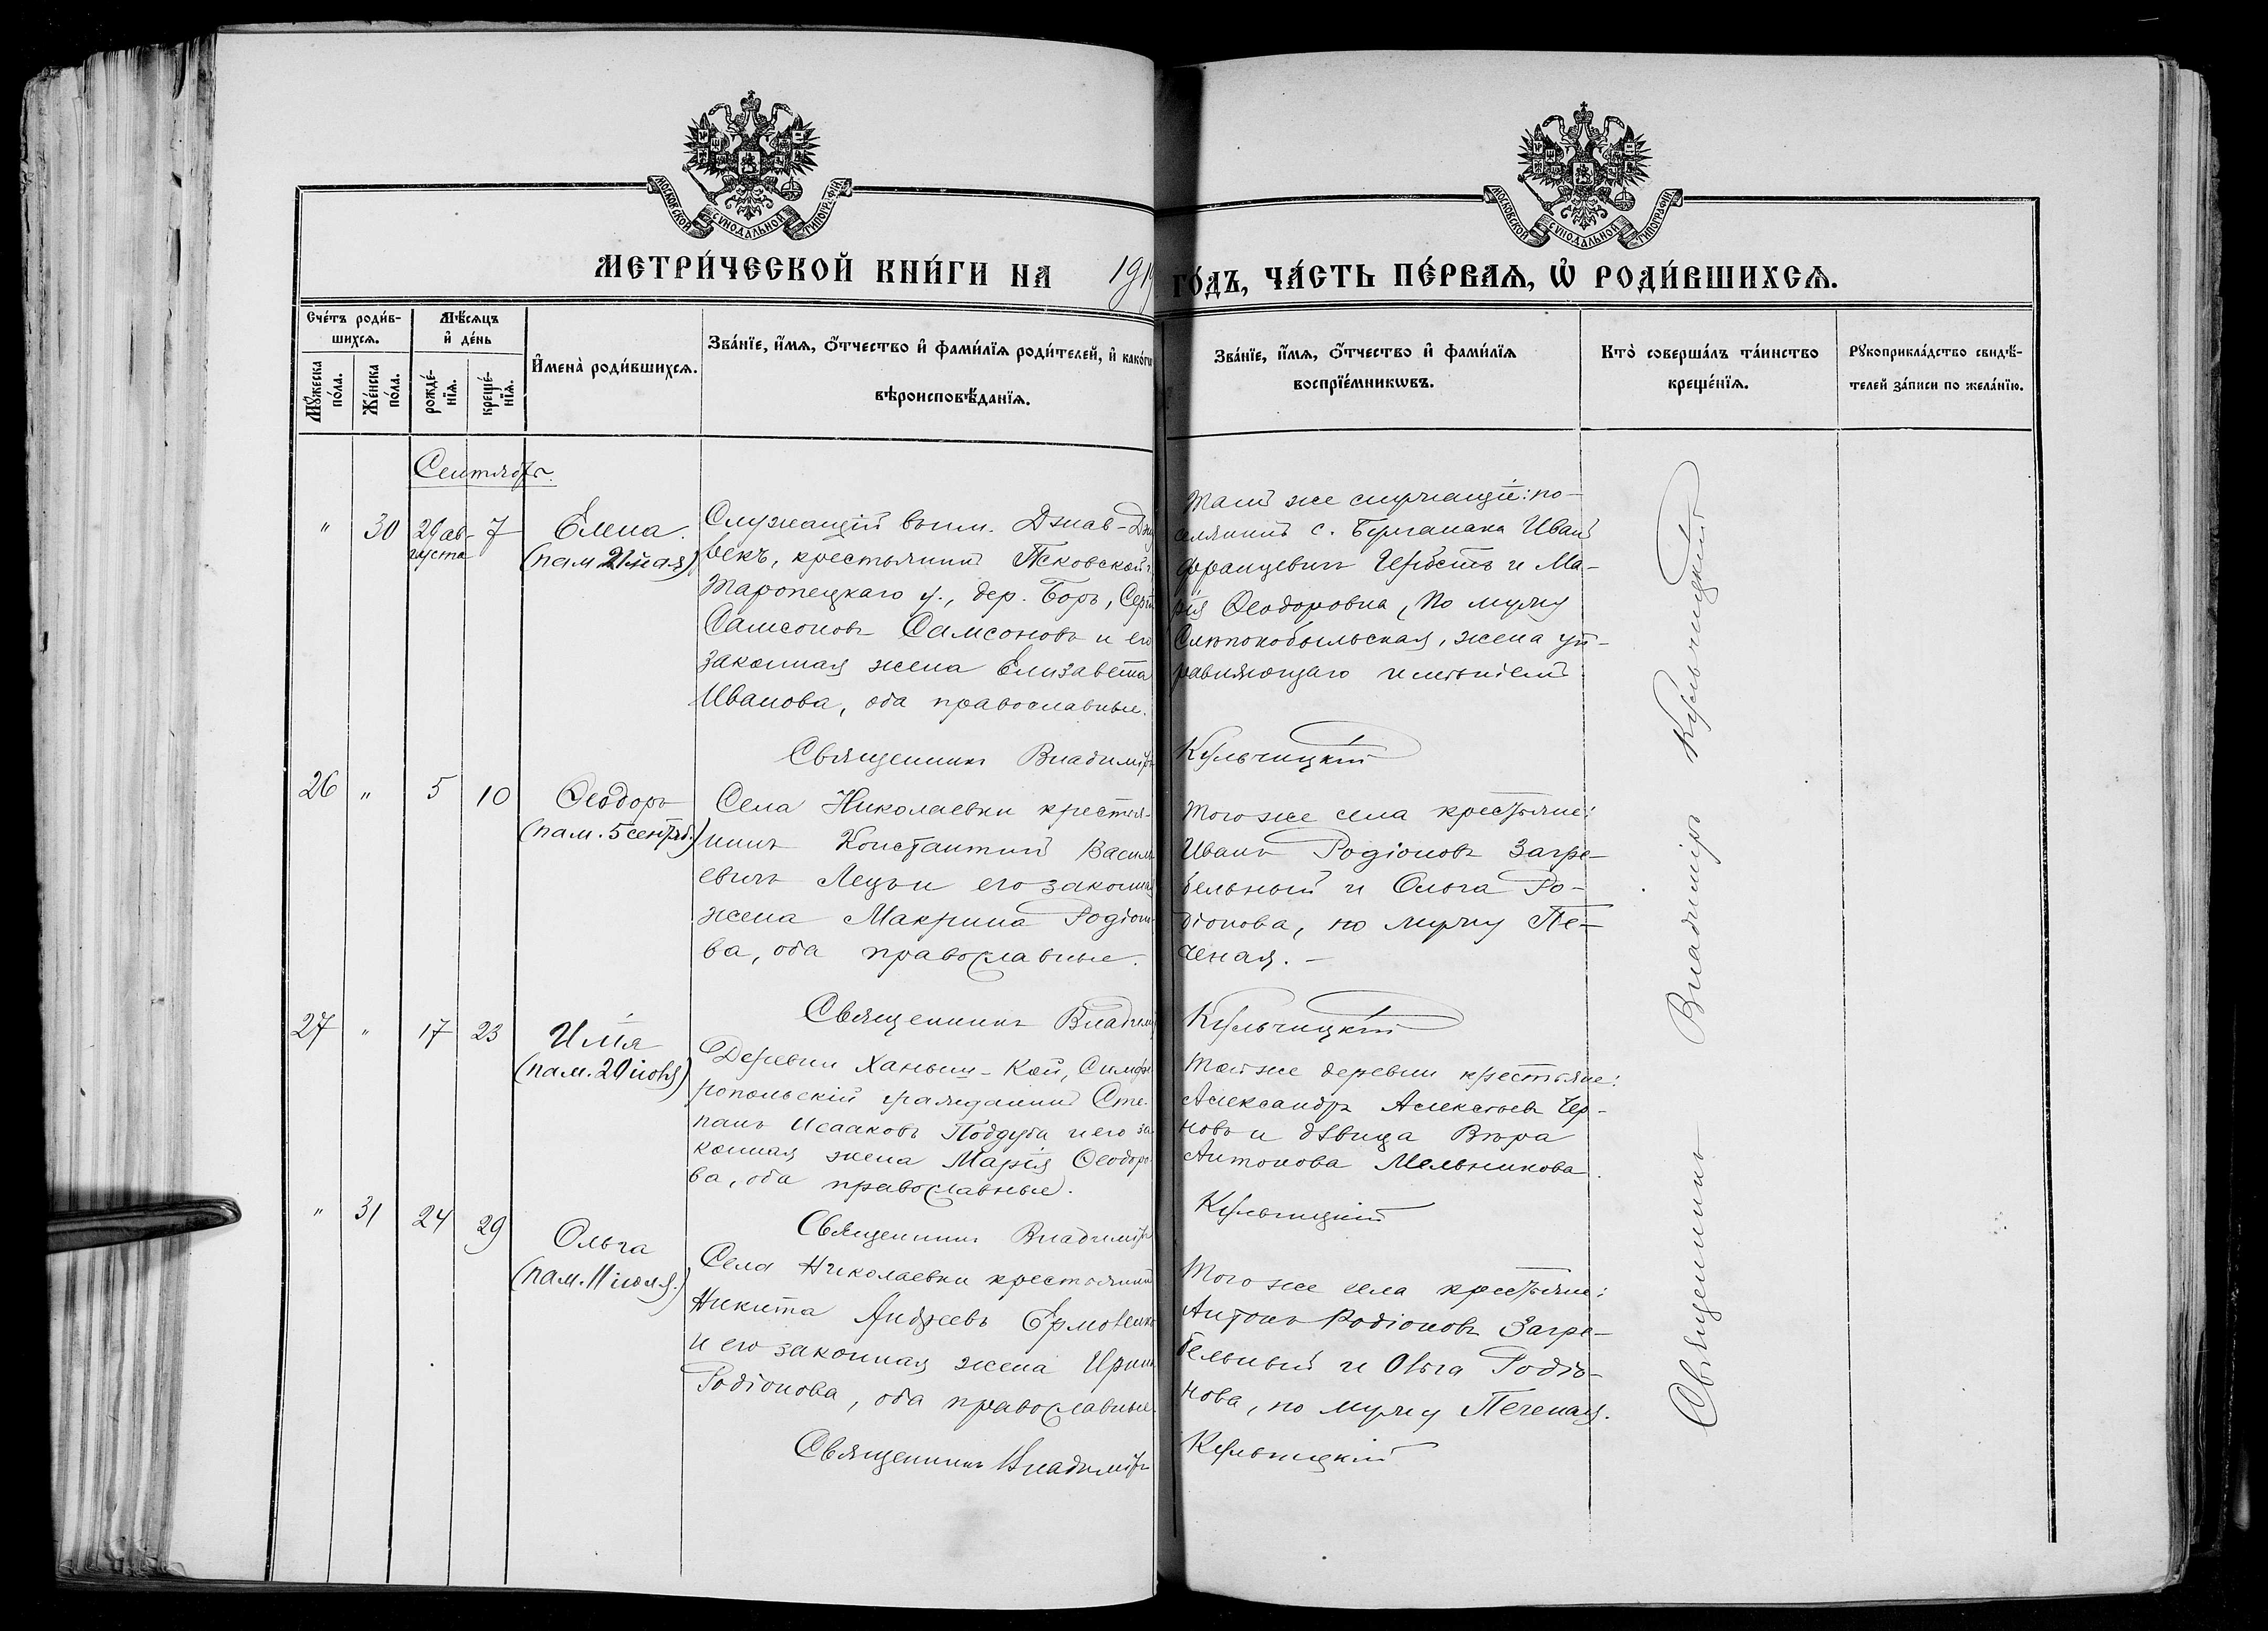 МОСКОВСКОЙ СѴНОДАЛЬНОЙ ТИПОГРАФІИ
МОСКОВСКОЙ СѴНОДАЛЬНОЙ ТИПОГРАФІИ
МЕТРИ́ЧЕСКОЙ КНИ́ГИ НА
ГО́ДЪ, ЧА́СТЬ ПЕ́РВАѦ, Ѽ РОДИ́ВШИХСѦ.
Сче́тъ роди́в-
шихсѧ.
Мꙋ́жеска по́ла.
Же́нска по́ла.
Мѣ́сѧцъ
и҆ де́нь
рожде́-
нїѧ.
креще́-
нїѧ.
И҆мена̀ роди́вшихсѧ.
Зва́нїе, и҆́мѧ, ѻ҆́тчество и҆ фами́лїѧ роди́телей, и҆ како́гѡ
вѣроисповѣ́данїѧ.
Зва́нїе, и҆́мѧ, ѻ҆́тчество и҆ фами́лїѧ
воспрїе́мникѡвъ.
Кто̀ соверша́лъ та́инство
креще́нїѧ.
Рꙋкоприкла́дство свидѣ́-
телей за́писи по жела́нїю.
Сентябрь.
" 30 7
августа
Елена
(пам 21 мая)
Служащій въ им. Джав-
бекъ, крестьянинъ Псковской
Торопецкаго у., дер. Боръ,
Самсоновъ Самсоновъ и его
законная жена Елизавета
Иванова, оба православные.
Священникъ Владиміръ
Тамъ же служащіе: по-
селянинъ с. Иванъ
Францевичъ и Ма-
рія Ѳеодоровна, по мужу
жена уп-
равляющаго имѣніемъ
Кульчицкій
26 " 5 10
Ѳеодоръ
(пам. 5 сентяб.)
Села Николаевки крестья-
нинъ Константинъ Василь
евичъ и его законная
жена Макрина Родіоно
ва, оба православные.
Священникъ Владиміръ
Того же села крестьяне:
Иванъ Родіоновъ Загре-
бельный и Ольга Ро-
діонова, по мужу Пе-
ченая. –
Кульчицкій
27 " 17 23
Илія
(пам. 20 іюля)
Деревни Ханыш-Кой, Симфе
ропольскій гражданинъ Сте-
панъ Исааковъ Поддуба и его за
конная жена Марія Ѳеодоро
ва, оба православные.
Священникъ Владиміръ
Той же деревни крестьяне:
Александръ Алексѣевъ Чер-
новъ и дѣвица Вѣра
Антонова Мельникова.
Кульчицкій
" 31 24 29
Ольга
(пам. 11 іюля.)
Села Николаевки крестьянинъ
Никита Андреевъ
и его законная жена Ирина
Родіонова, оба православные.
Священникъ Владиміръ
Того же села крестьяне:
Антонъ Родіоновъ Загре-
бельный и Ольга Родіо-
нова, по мужу Печеная.
Кульчицкій
Священникъ Владиміръ Кульчицкій